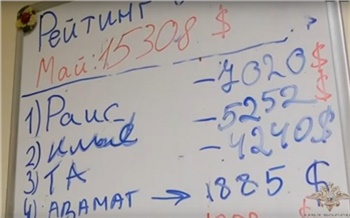 Рейтинг
Май: 15308 $
1) Раис -7020$
2) -5252$
3) ТА -4240$
4) АВАМАТ → 1885 $